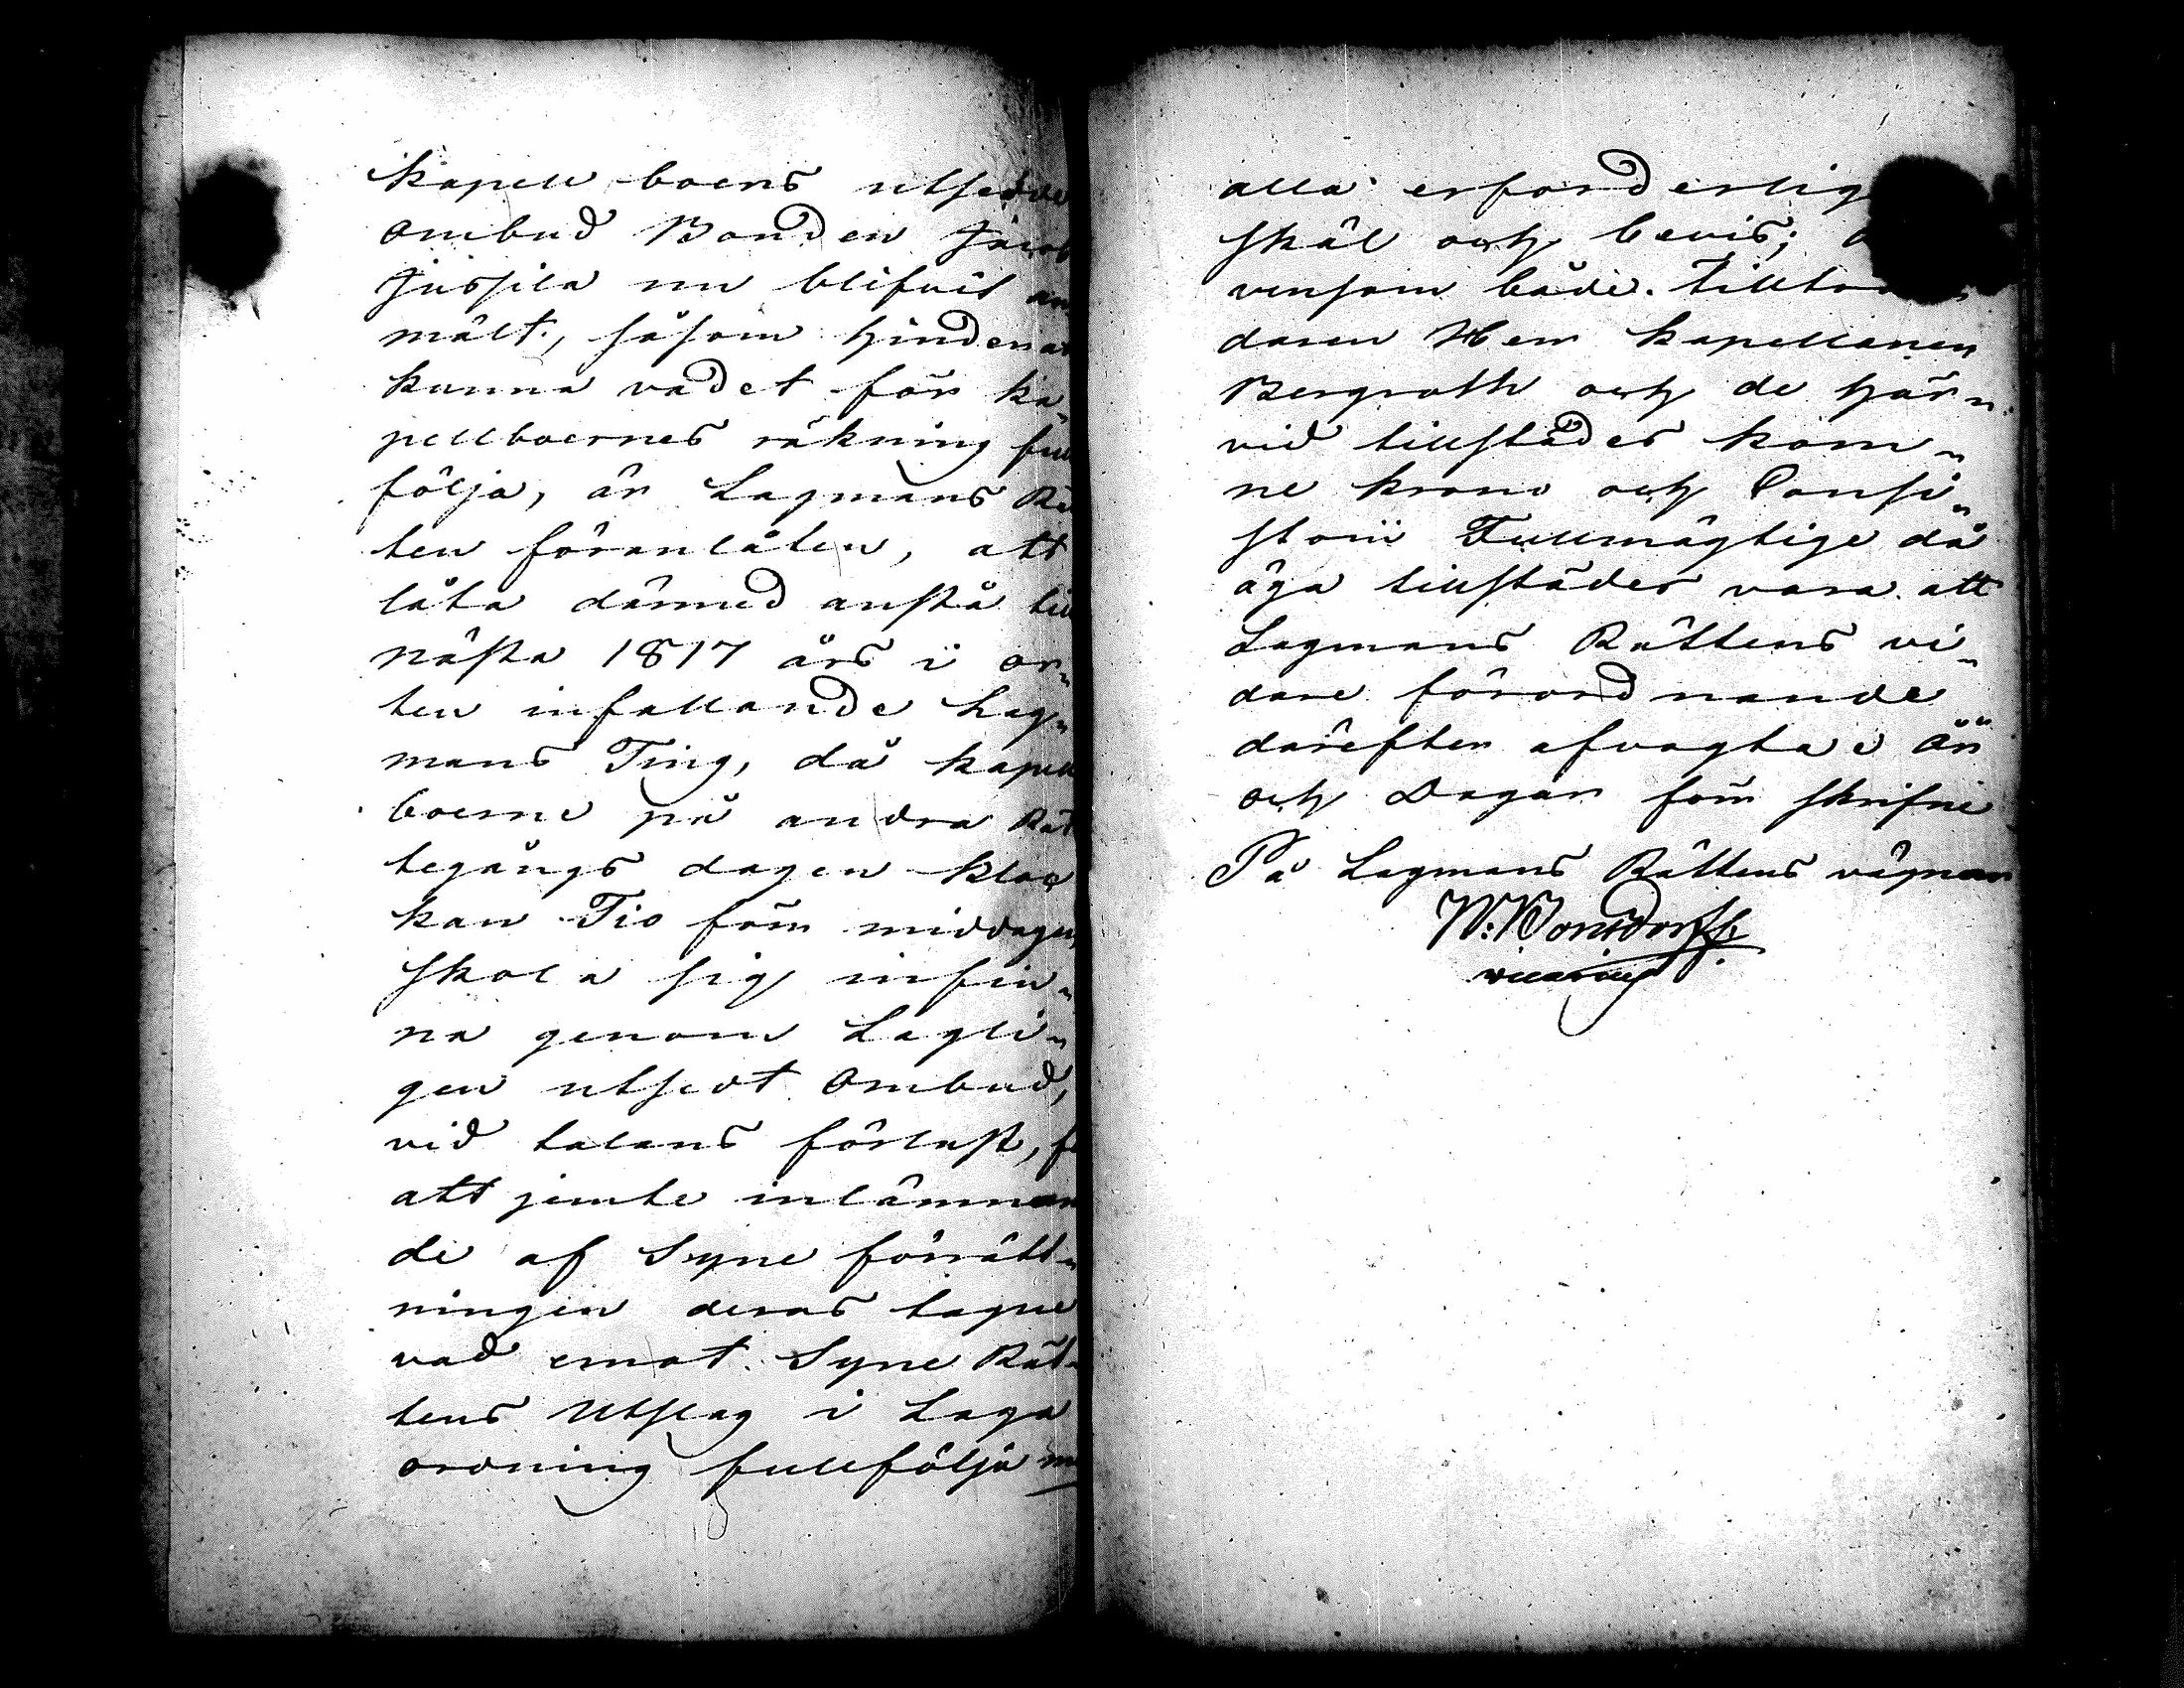 Kapell boens utsedde
ombud Bonden Jacob
Jussila nu blifvit an
mält, såsom hinder at
kunna vadet för ka„
pellboernes räkning full
följa, är Lagmans Rä
ten föranlåten, att
låta därmed anstå till
nästa 1817 års i or„
ten infallande Lag„
mans Ting, då Kapell
boerne på andra Rät
tegångs dagen kloc
kan Tio förm middagen,
skola sig infin„
na genom Lagli„
gen utsedt ombud,
vid talans förlust, fö
att jemte inlämnan
de af Syne förrätt„
ningen deras tagne
vad emot Syne Rät„
tens Utslag i Laga
ordning fullfölja
alla erforderlig
skäl och bevis;
vensom både tilltra
daren Herr Kapellanen
Bergroth och de här„
vid tillstädes kom„
ne krono och Consi„
storii Fullmägtige då
äga tillstädes vara att
Lagmans Rättens vi„
dare förordnande
därefter afvagta. År
och Dagar som skrifne
På Lagmans Rättens vägnar